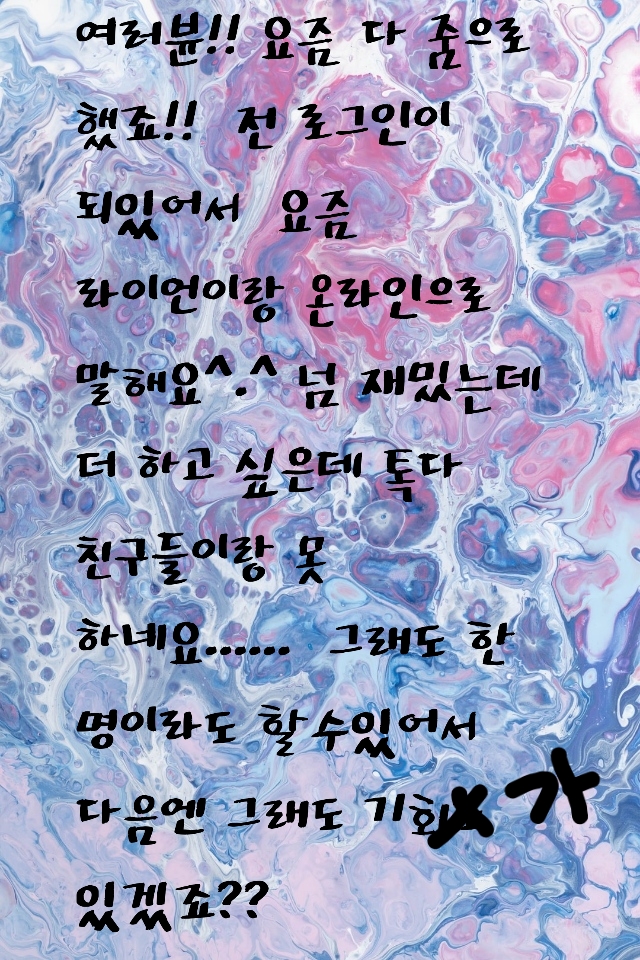 여러뷴!! 요즘 다 줌으로
했죠!! 전 로그인이
되있어서 요즘
라이언이랑 온라인으로
말해요^.^ 넘 재밌는데
더 하고 싶은데 톡다
친구들이랑 못
하네요...... 그래도 한
명이라도 할수있어서
다음엔 그래도 기회 가
있겠죠??